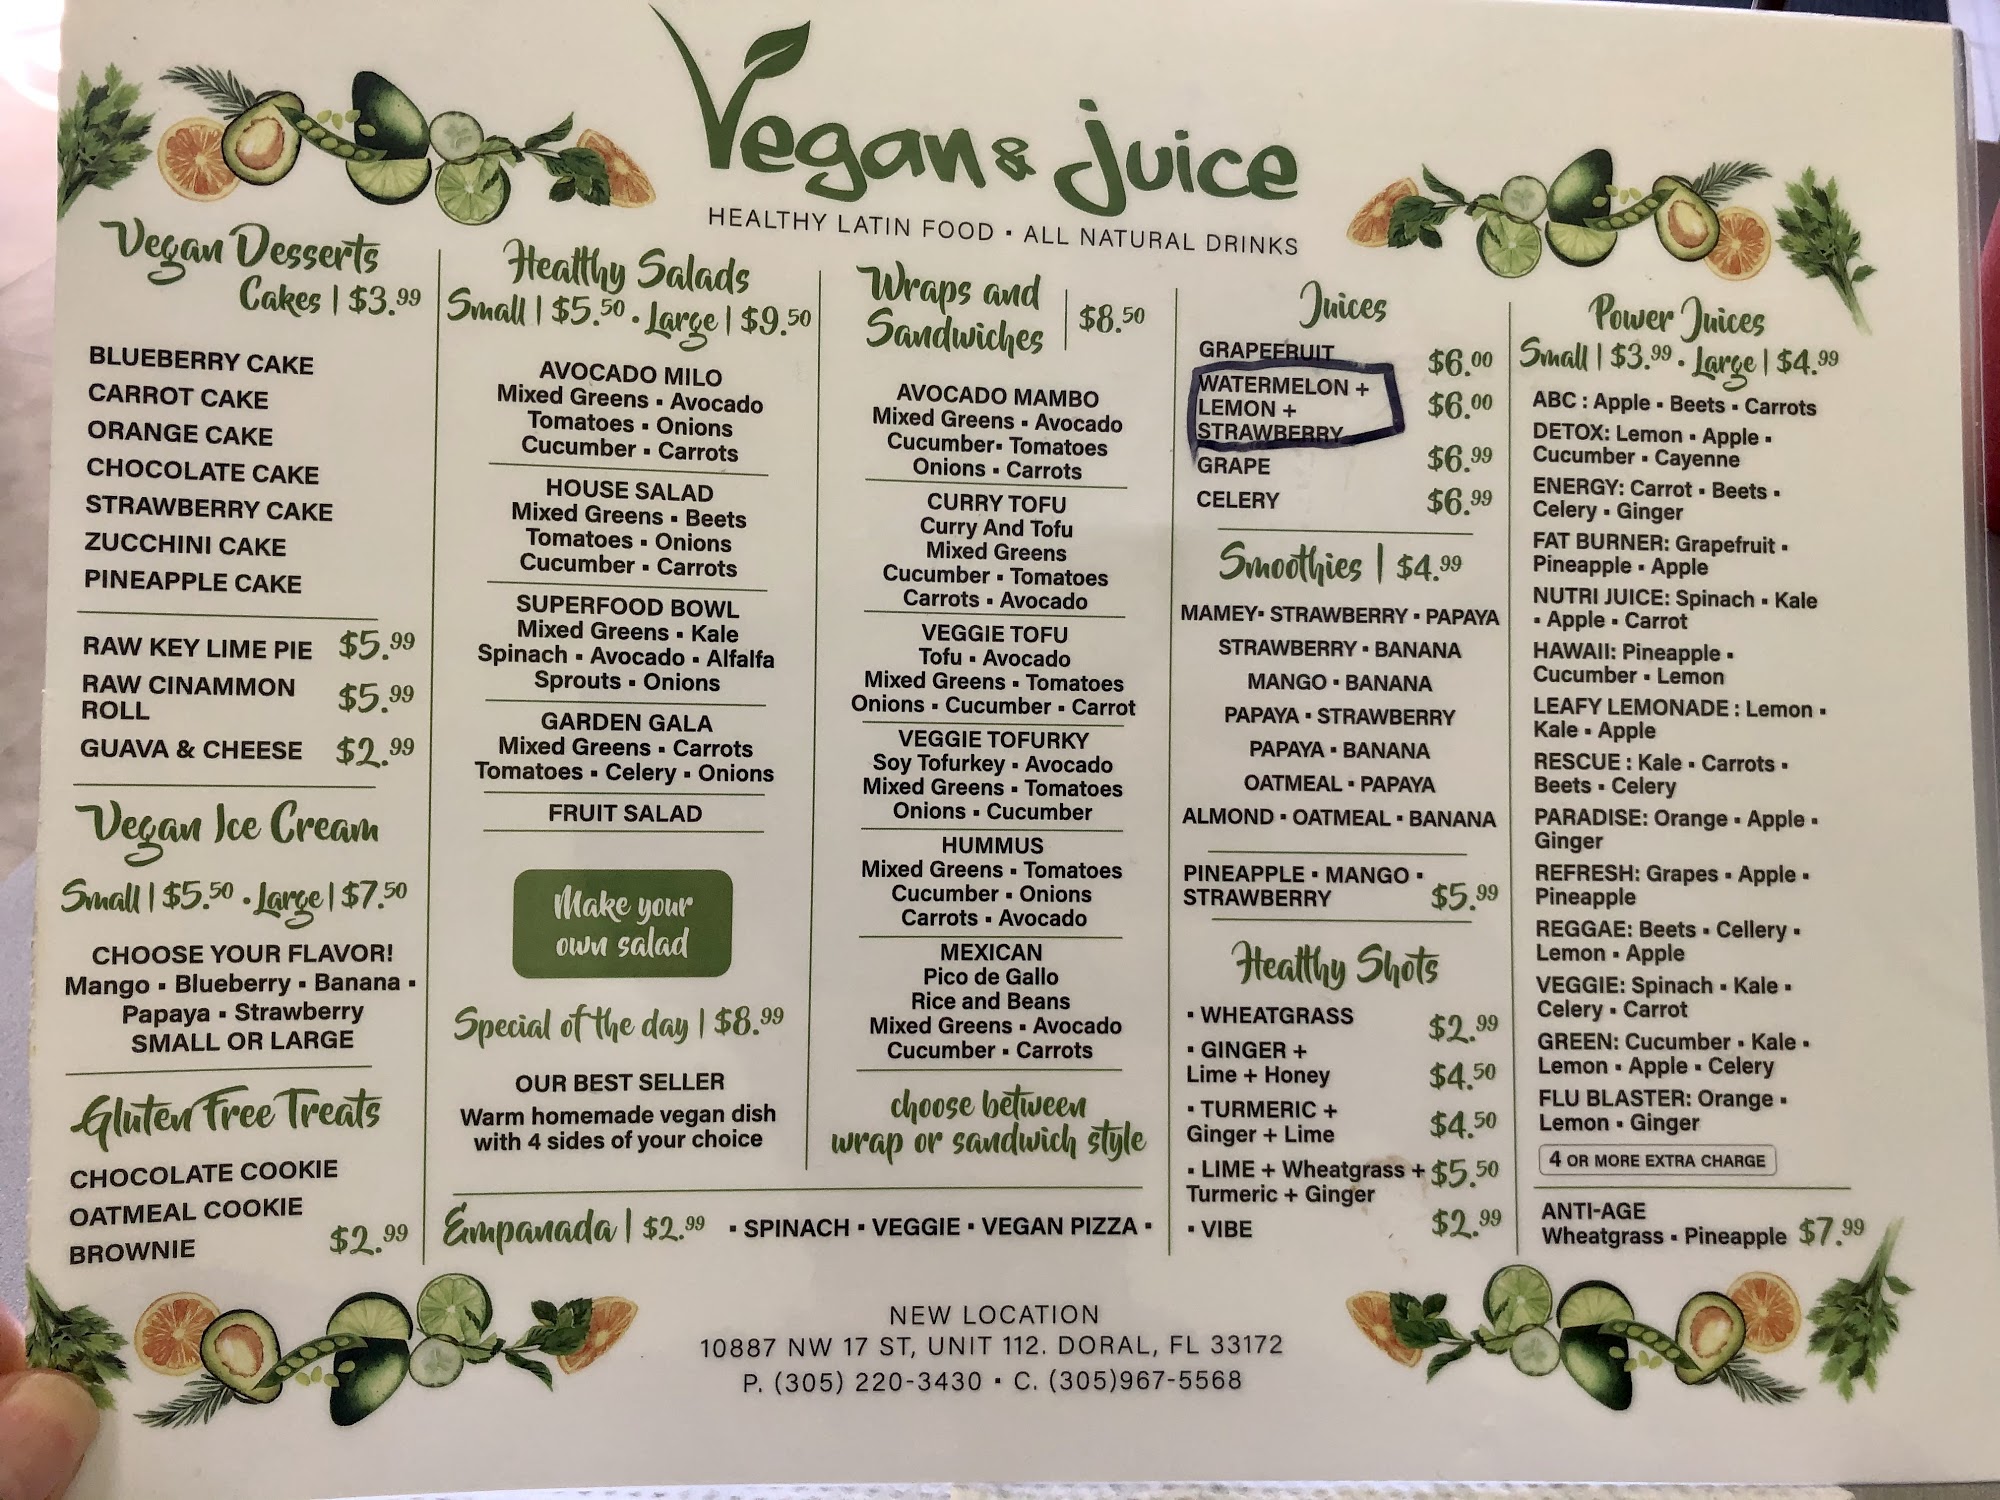 Vegan & Juice
HEALTHY LATIN FOOD ▪ ALL NATURAL DRINKS
Vegan Desserts
Cakes | $3.99
BLUEBERRY CAKE
CARROT CAKE
ORANGE CAKE
CHOCOLATE CAKE
STRAWBERRY CAKE
ZUCCHINI CAKE
PINEAPPLE CAKE
RAW KEY LIME PIE $5.99
RAW CINAMMON
ROLL $5.99
GUAVA & CHEESE $2.99
Vegan Ice Cream
Small | $5.50 ▪ Large | $7.50
CHOOSE YOUR FLAVOR!
Mango ▪ Blueberry ▪ Banana ▪
Papaya ▪ Strawberry
SMALL OR LARGE
Gluten Free Treats
CHOCOLATE COOKIE
OATMEAL COOKIE
BROWNIE $2.99
Healthy Salads
Small | $5.50 ▪ Large | $9.50
AVOCADO MILO
Mixed Greens ▪ Avocado
Tomatoes ▪ Onions
Cucumber ▪ Carrots
HOUSE SALAD
Mixed Greens ▪ Beets
Tomatoes ▪ Onions
Cucumber ▪ Carrots
SUPERFOOD BOWL
Mixed Greens ▪ Kale
Spinach ▪ Avocado ▪ Alfalfa
Sprouts ▪ Onions
GARDEN GALA
Mixed Greens ▪ Carrots
Tomatoes ▪ Celery ▪ Onions
FRUIT SALAD
Make your
own salad
Special of the day | $8.99
OUR BEST SELLER
Warm homemade vegan dish
with 4 sides of your choice
Wraps and
Sandwiches | $8.50
AVOCADO MAMBO
Mixed Greens ▪ Avocado
Cucumber▪ Tomatoes
Onions ▪ Carrots
CURRY TOFU
Curry And Tofu
Mixed Greens
Cucumber ▪ Tomatoes
Carrots ▪ Avocado
VEGGIE TOFU
Tofu ▪ Avocado
Mixed Greens ▪ Tomatoes
Onions ▪ Cucumber ▪ Carrot
VEGGIE TOFURKY
Soy Tofurkey ▪ Avocado
Mixed Greens ▪ Tomatoes
Onions ▪ Cucumber
HUMMUS
Mixed Greens ▪ Tomatoes
Cucumber ▪ Onions
Carrots ▪ Avocado
MEXICAN
Pico de Gallo
Rice and Beans
Mixed Greens ▪ Avocado
Cucumber ▪ Carrots
choose between
wrap or sandwich style
Empanada | $2.99 ▪ SPINACH ▪ VEGGIE ▪ VEGAN PIZZA ▪
Juices
GRAPEFRUIT $6.00
WATERMELON +
LEMON + $6.00
STRAWBERRY
GRAPE $6.99
CELERY $6.99
Smoothies | $4.99
MAMEY▪ STRAWBERRY ▪ PAPAYA
STRAWBERRY ▪ BANANA
MANGO ▪ BANANA
PAPAYA ▪ STRAWBERRY
PAPAYA ▪ BANANA
OATMEAL ▪ PAPAYA
ALMOND ▪ OATMEAL ▪ BANANA
PINEAPPLE ▪ MANGO ▪
STRAWBERRY $5.99
Healthy Shots
▪ WHEATGRASS $2.99
▪ GINGER +
Lime + Honey $4.50
▪ TURMERIC +
Ginger + Lime $4.50
▪ LIME + Wheatgrass + $5.50
Turmeric + Ginger
▪ VIBE $2.99
Power Juices
Small | $3.99 ▪ Large | $4.99
ABC : Apple ▪ Beets ▪ Carrots
DETOX: Lemon ▪ Apple ▪
Cucumber ▪ Cayenne
ENERGY: Carrot ▪ Beets ▪
Celery ▪ Ginger
FAT BURNER: Grapefruit ▪
Pineapple ▪ Apple
NUTRI JUICE: Spinach ▪ Kale
▪ Apple ▪ Carrot
HAWAII: Pineapple ▪
Cucumber ▪ Lemon
LEAFY LEMONADE : Lemon ▪
Kale ▪ Apple
RESCUE : Kale ▪ Carrots ▪
Beets ▪ Celery
PARADISE: Orange ▪ Apple ▪
Ginger
REFRESH: Grapes ▪ Apple ▪
Pineapple
REGGAE: Beets ▪ Cellery ▪
Lemon ▪ Apple
VEGGIE: Spinach ▪ Kale ▪
Celery ▪ Carrot
GREEN: Cucumber ▪ Kale ▪
Lemon ▪ Apple ▪ Celery
FLU BLASTER: Orange ▪
Lemon ▪ Ginger
4 OR MORE EXTRA CHARGE
ANTI-AGE
Wheatgrass ▪ Pineapple $7.99
NEW LOCATION
10887 NW 17 ST, UNIT 112. DORAL, FL 33172
P. (305) 220-3430 ▪ C. (305)967-5568